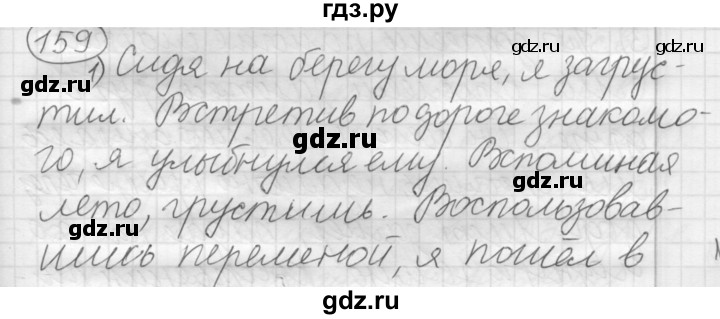 гдз.ру
159
1) Сидя на берегу моря, я загрус-
gdz.ru gdz.ru
тил. Встретив по дороге знакомо-
gdz.ru
го, я улыбнулся ему. Вспоминая
gdz.ru
лето, грустишь. Воспользовав-
gdz.ru
шись переменой, я пошёл в
gdz.ru gdz.ru
gdz.ru